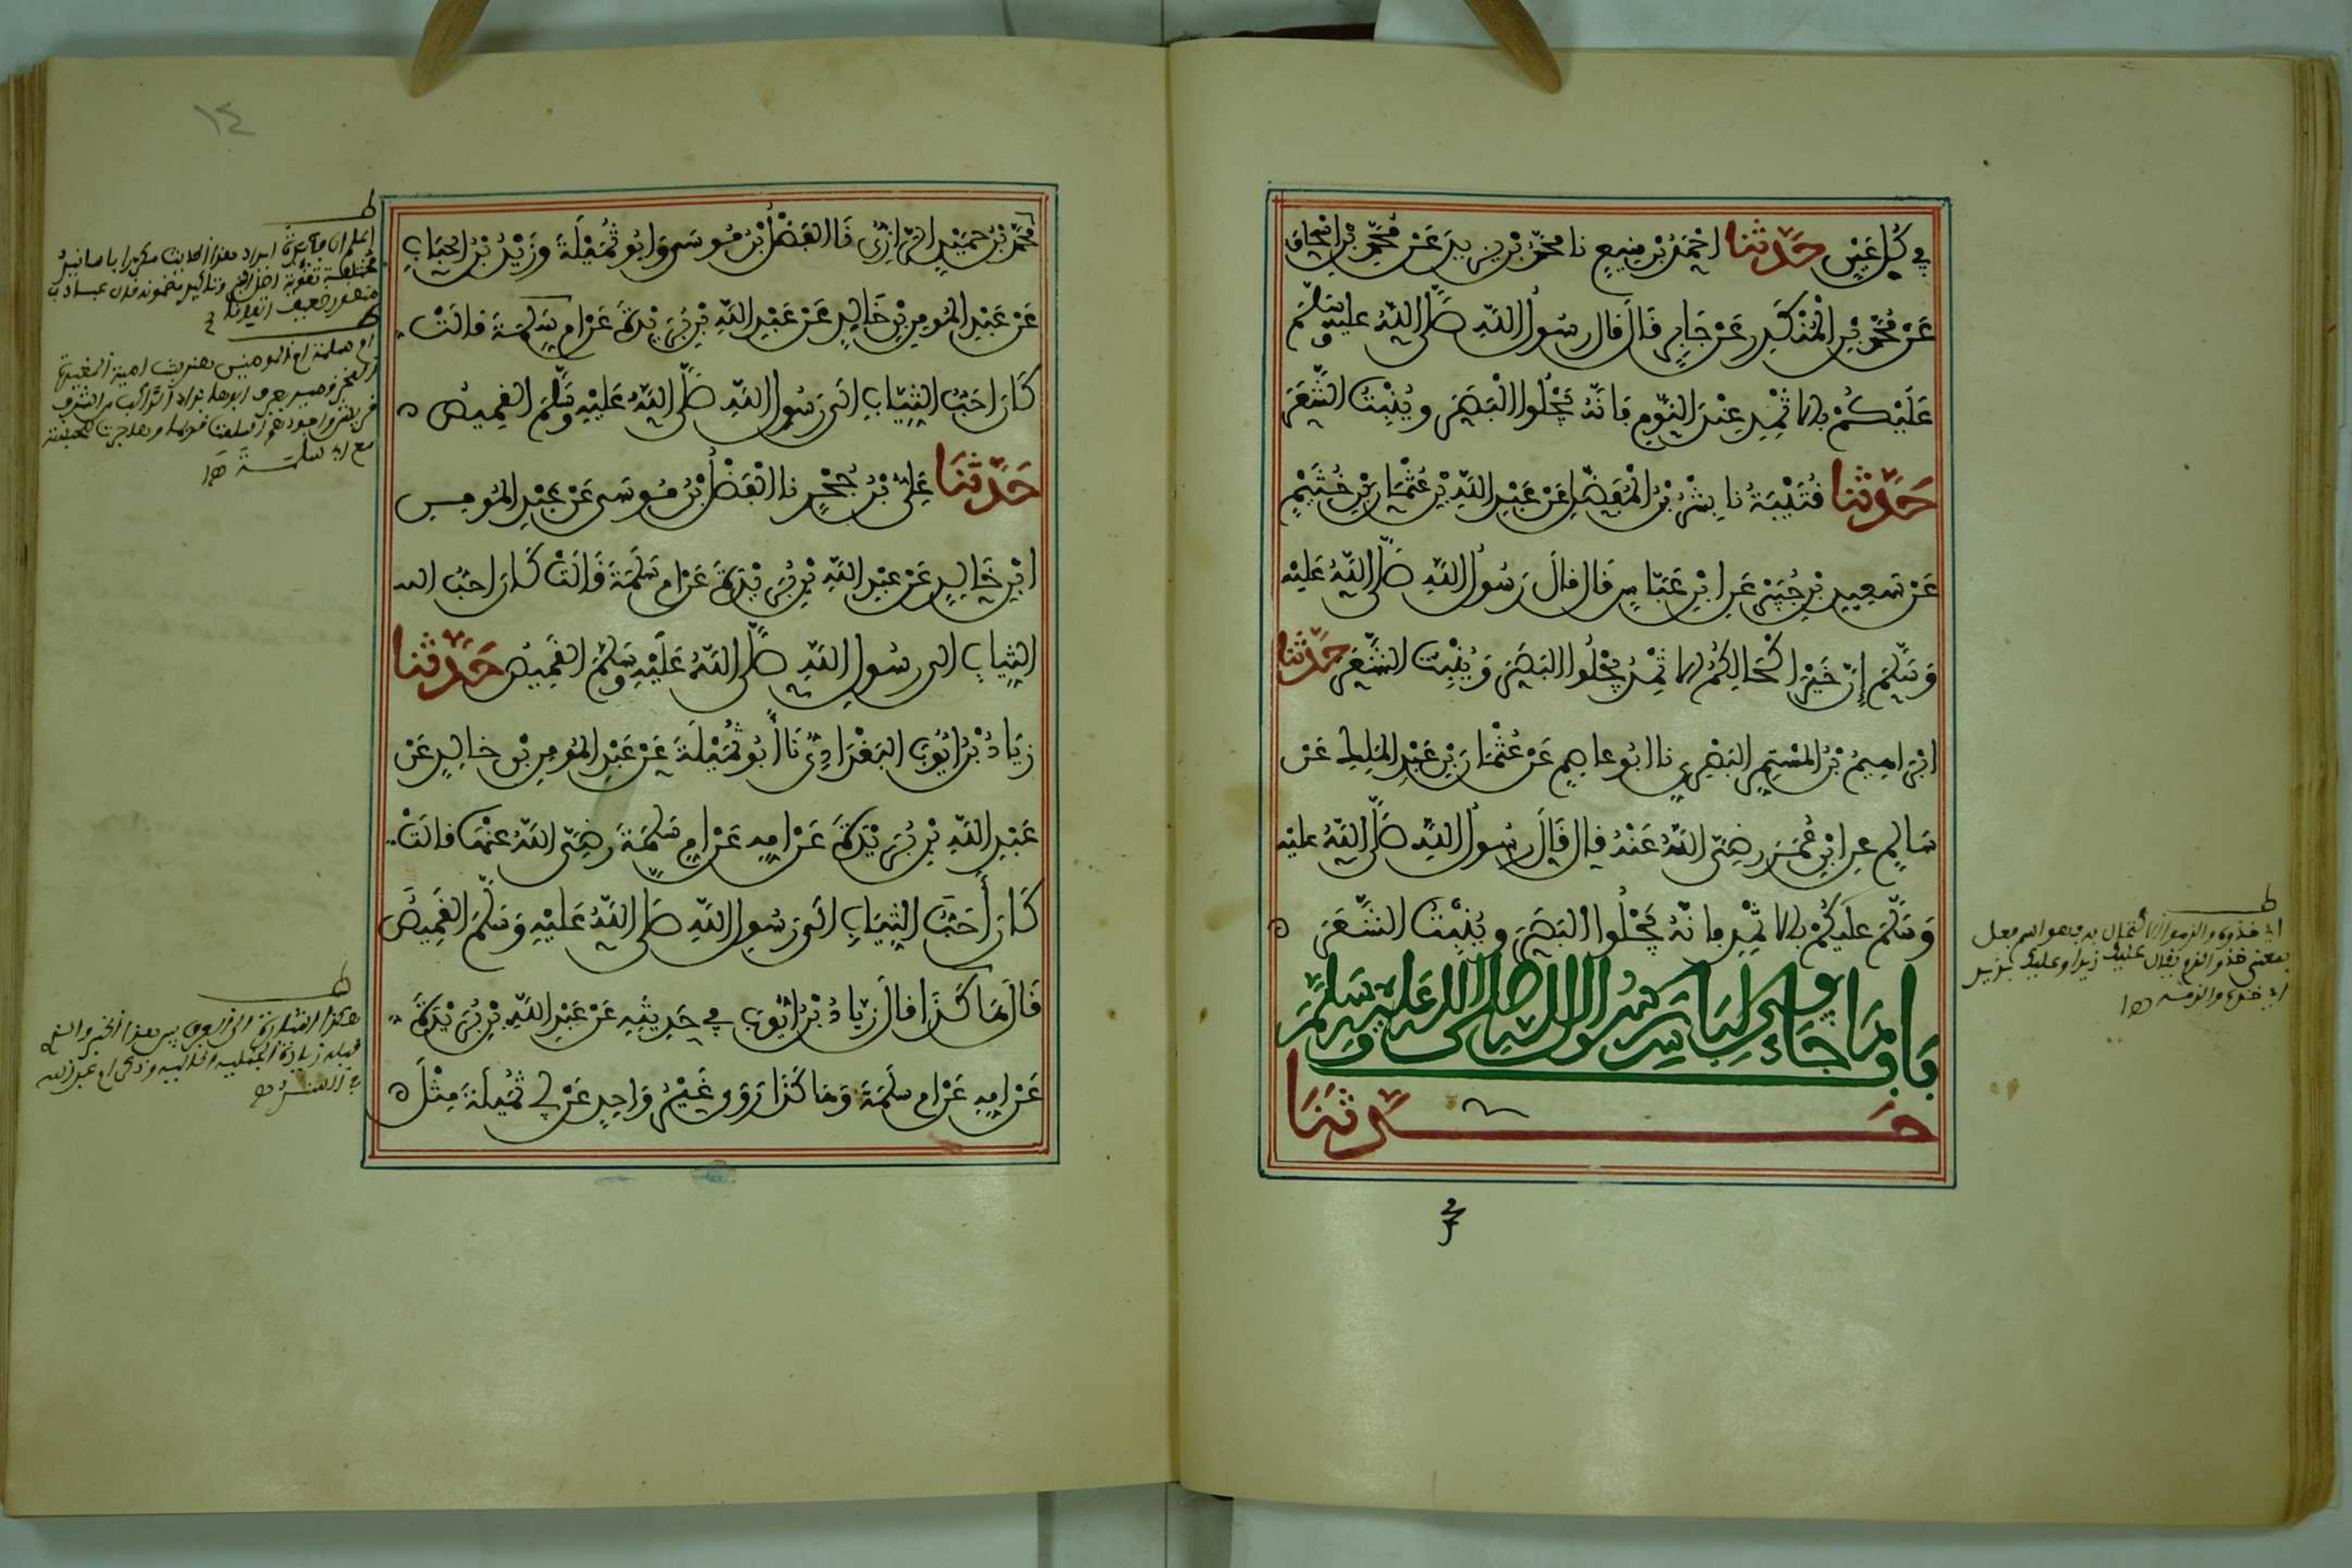 في كل عين حدثنا احمد بن منيع نا محمد بن يزيد عن محمد بن اسحاق
عن محمد بن المنكدر عن جابر قال قال رسول الله صلى الله عليه وسلم
عليكم بالاثمد عند النوم فانه يجلوا البصر وينبت الشعر
حدثنا قتيبة نا بشر بن المفضل عن عبد الله بن عثمان بن خثيم
عن سعيد بن جبير عن ابن عباس قال قال رسول الله صلى الله عليه
وسلم إن خير اكحالكم الاثمد يجلوا البصر وينبت الشعر حدثنا
ابراهيم بن المستمر البصري نا ابو عاصم عن عثمان بن عبد الملك عن
سالم عن ابن عمر رضي الله عنه قال قال رسول الله صلى الله عليه
وسلم عليكم بالاثمد فانه يجلوا البصر وينبت الشعر ه
باب ما جاء في لباس رسول الله صلى الله عليه وسلم
حدثنا
اي خذوه والزموا الاكتحال به وهو اسم فعل
بمعنى خذ والزم يقال عليك زيدا وعليك بزيد
اي خذه والزمه اه
١٤
محمد بن حميد الرازي نا الفضل بن موسى وابو ثميلة وزيد بن الحباب
عن عبد المومن بن خالد عن عبد الله بن بريدة عن ام سلمة قالت
كان احب الثياب الى رسول الله صلى الله عليه وسلم القميص ه
حدثنا علي بن حجر نا الفضل بن موسى عن عبد المومن
ابن خالد عن عبد الله بن بريدة عن ام سلمة قالت كان احب الـ
الثياب الى رسول الله صلى الله عليه وسلم القميص حدثنا
زياد بن ايوب البغدادي نا أبو ثميلة عن عبد المومن بن خالد عن
عبد الله بن بريدة عن امه عن ام سلمة رضي الله عنها قالت
كان أحب الثياب الى رسول الله صلى الله عليه وسلم القميص
قال هاكذا قال زياد بن ايوب في حديثه عن عبد الله بن بريدة
عن امه عن ام سلمة وهاكذا روى غير واحد عن ابي ثميلة مثل ه
مع ابي سلمة اه